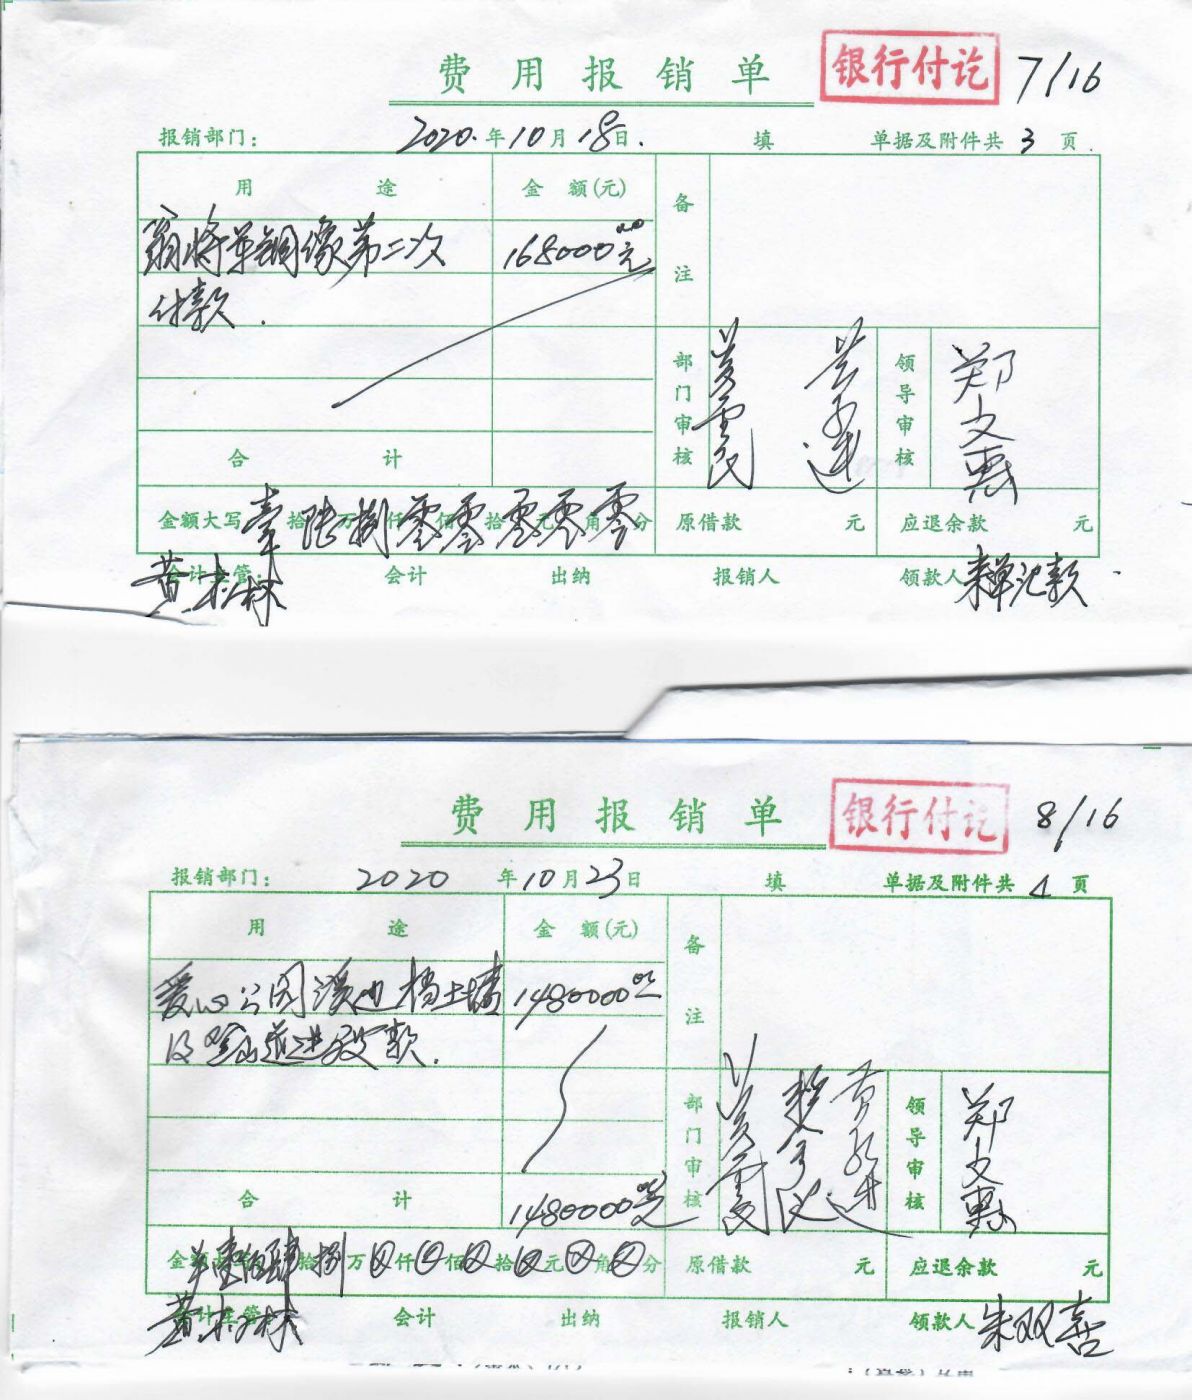 费用报销单 银行付讫 7/16
报销部门： 2020.年10月18日. 填 单据及附件共 3 页.
用 途 金 额(元) 备
翁将军铜像第二次 168000.00元 注
付款.
部门审核 领导审核 郑文惠
合 计
金额大写 壹拾陆万捌仟零佰零拾零元零角零分 原借款 元 应退余款 元
会计主管： 黄木林 会计 出纳 报销人 领款人
费用报销单 银行付讫 8/16
报销部门： 2020 年10月23日 填 单据及附件共 4 页
用 途 金 额(元) 备
爱心公园溪边挡土墙 1480000 注
及登山道进度款.
部门审核 领导审核 郑文惠
合 计 1480000
壹佰肆拾捌万 仟 佰 拾 元 角 分 原借款 元 应退余款 元
黄木林 会计 出纳 报销人 领款人 朱双喜